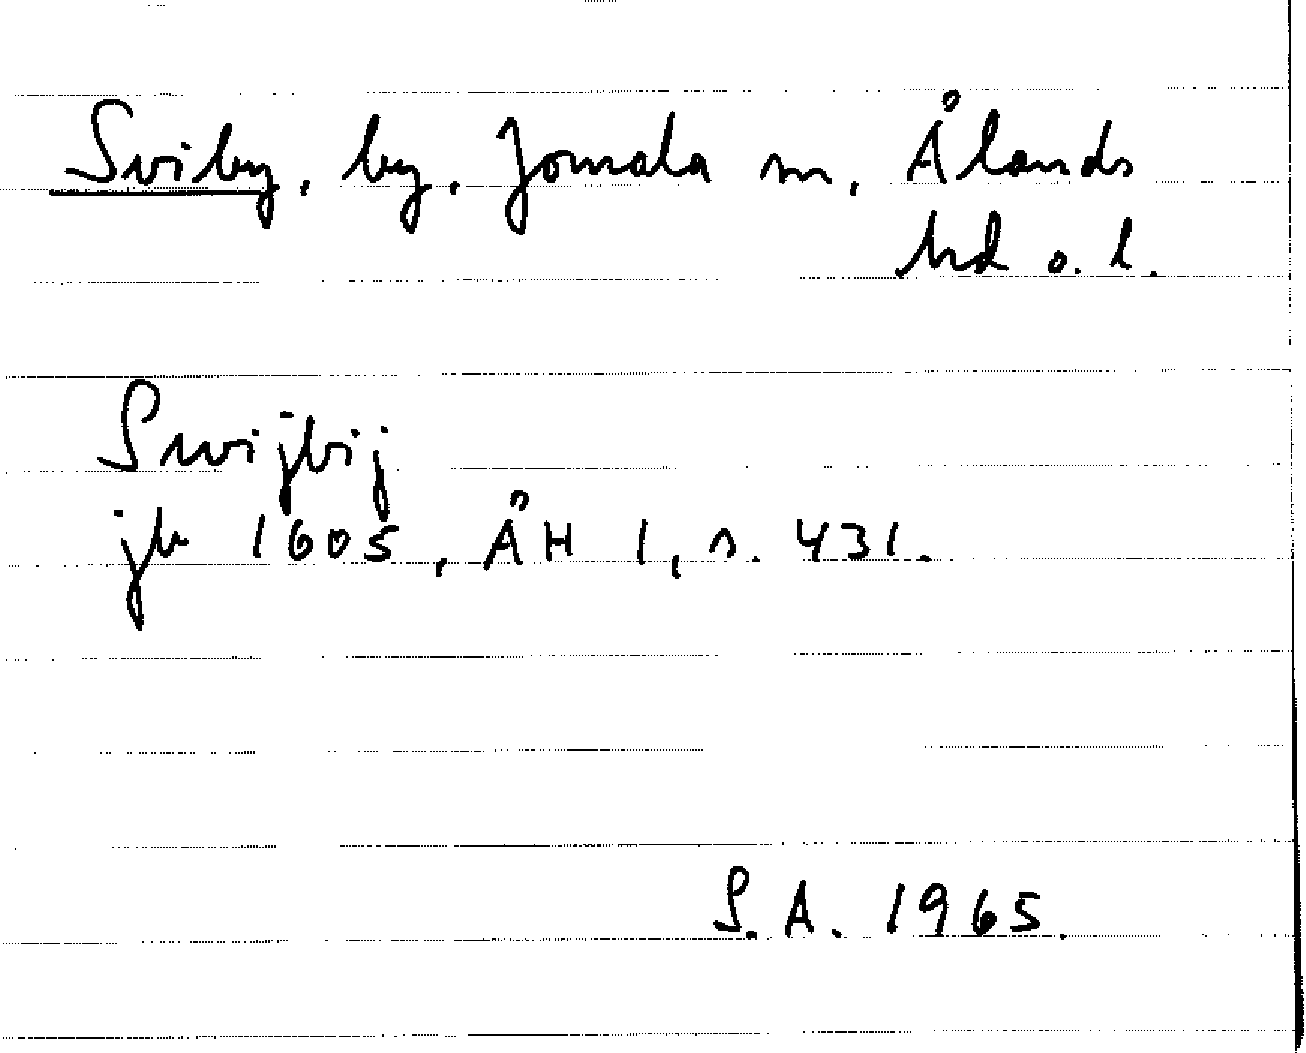 Sviby, by, Jomala sn, Ålands
hd o. l.
Swijbij
jb 1605, ÅH 1, s. 431.
S.A. 1965.